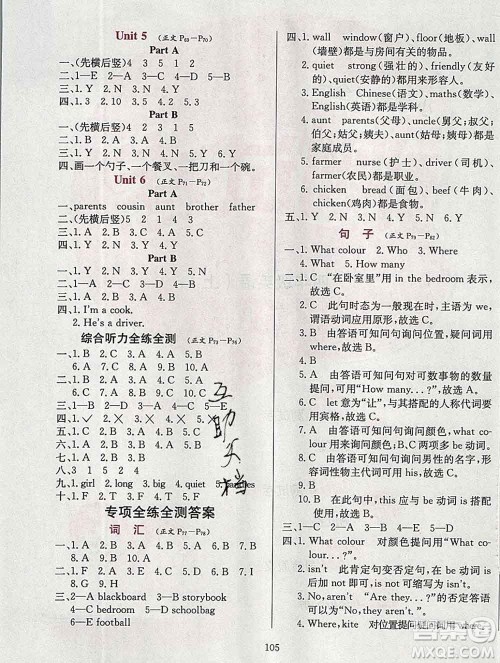 Unit 5 (正文 P69—P70)
Part A
一、(先横后竖)4 3 5 1 2
二、1—E 2—A 3—B 4—D 5—C
三、1. Y 2. N 3. Y 4. N 5. Y
四、1. 3 2. 10 3. 5 4. 2 5. 7
Part B
一、(先横后竖)4 2 3 1 5
二、1. B 2. B 3. B 4. A 5. B
三、1. Y 2. N 3. N 4. Y 5. Y
四、画一个勺子、一个餐叉、一把刀和一个碗。
Unit 6 (正文 P71—P72)
Part A
一、parents cousin aunt brother father
二、(先横后竖)5 2 1 4 3
三、1. C 2. A 3. B 4. A 5. A
Part B
一、1. B 2. B 3. A 4. B 5. B
二、1—B 2—D 3—A 4—C 5—E
三、1. N 2. Y 3. N 4. Y 5. Y
四、1. I'm a cook.
2. He's a driver.
综合听力全练全测 (正文 P73—P76)
一、1. B 2. C 3. A 4. A 5. B
6. A 7. C 8. A 9. B 10. A
二、1. C 2. B 3. A 4. B 5. B
三、1—B 2—D 3—A 4—C 5—E
四、1. √ 2. × 3. × 4. √ 5. ×
五、1. B 2. A 3. A 4. B 5. B
六、1. A 2. B 3. A 4. B 5. A
七、1. B 2. B 3. A 4. B 5. A
八、3 1 5 2 4
九、1. girl 2. long 3. big 4. quiet 5.
十、1. F 2. F 3. T 4. T 5. F
互助文档
专项全练全测答案
词 汇 (正文 P77—P78)
一、1. A 2. B 3. A 4. B 5. A 6. B 7. A
8. B 9. A 10. A
二、1. D 2. C 3. B 4. A 5. F 6. E 7. I
8. G 9. H
三、2—a blackboard 3—a storybook
4—C bedroom 5—D schoolbag
6—E football
四、1. wall window(窗户)、floor(地板)、wall
(墙壁)都是与房间有关的物品。
2. quiet strong(强壮的)、friendly(友好
的)、quiet(安静的)都用来形容人。
3. English Chinese(语文)、maths(数学)、
English(英语)都是学科。
4. aunt parents(父母)、uncle(舅父;叔父;
伯父;姑父;姨夫)、aunt(姑母;姨母)都是
家庭成员。
5. farmer nurse(护士)、driver(司机)、
farmer(农民)都是职业。
6. chicken bread(面包)、beef(牛肉)、
chicken(鸡肉)都是食物。
五、1. Y 2. N 3. Y 4. N 5. N
句 子 (正文 P79—P82)
一、1. What colour 2. Who 3. Where
4. What 5. How many
二、1. C “在卧室里”用 in the bedroom 表示,
故选 C。
2. C 此句时态为一般现在时,主语为 we,
谓语动词用原形,故选 C。
3. B 由答语可知问句询问位置,疑问词用
where,故选 B。
4. A 由答语可知问句对可数事物的数量
提问,可用“How many...?”,故选 A。
5. C let 意为“让”,与其搭配的人称代词要
用宾格,故选 C。
6. B 由答语可知问句询问颜色;B、C 两项
都可用来询问颜色,但 C 项多 be 动词 is,
故选 B。
7. A 由答语可知问句询问男性的名字,形
容词性物主代词可用 his,故选 A。
8. B 在此句中,this 应与 be 动词 is 搭配,
故选 B。
三、1—C 2—D 3—A 4—B 5—E
四、1. What colour 对颜色提问用 what
colour。
2. isn't 此句由肯定句变否定句,在 be 动词
is 的后面加 not,可缩写为 isn't。
3. No, aren't “Are they...?”的否定答语可以
为“No, they aren't.”。
4. Where, kite 对位置提问疑问词用 where。
105
作业帮
MXQE.COM